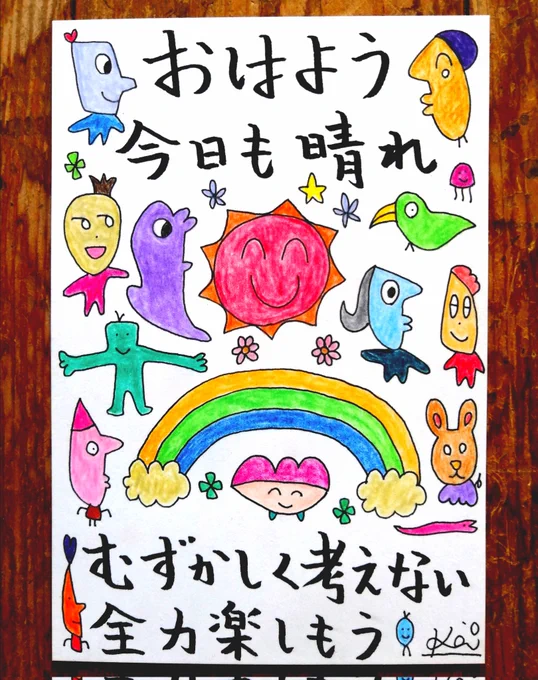 おはよう
今日も晴れ
むずかしく考えない
全力楽しもう